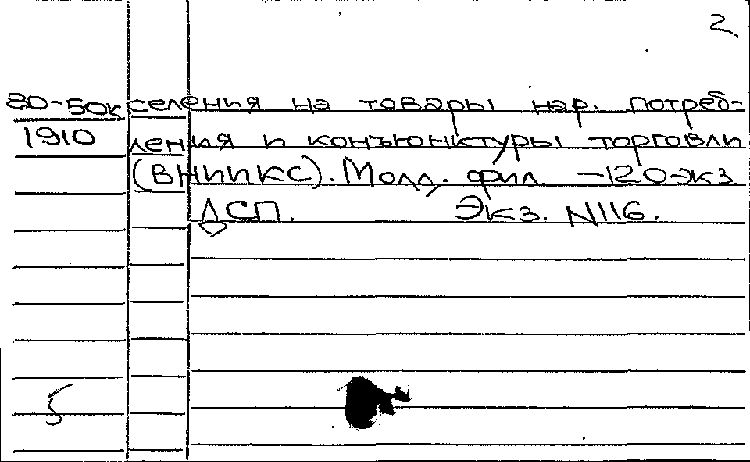 2
80-50к селения на товары нар. потреб-
1910 ления и конъюнктуры торговли
(ВНИИКС). Молд. фил. -120 экз
ДСП. Экз. N116.
5